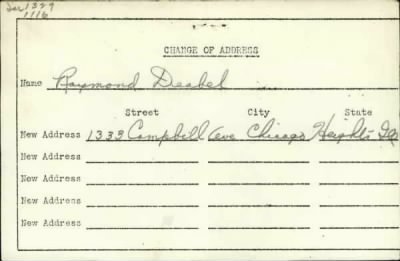 Ser 1329
1116
CHANGE OF ADDRESS
Name Raymond Deabel
Street City State
New Address 1333 Campbell Ave Chicago Heights Ill
New Address
New Address
New Address
New Address